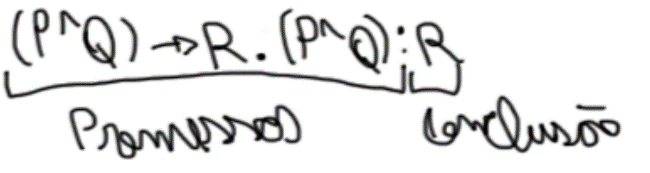 (P^Q) → R. (P^Q): R
Premissas Conclusão